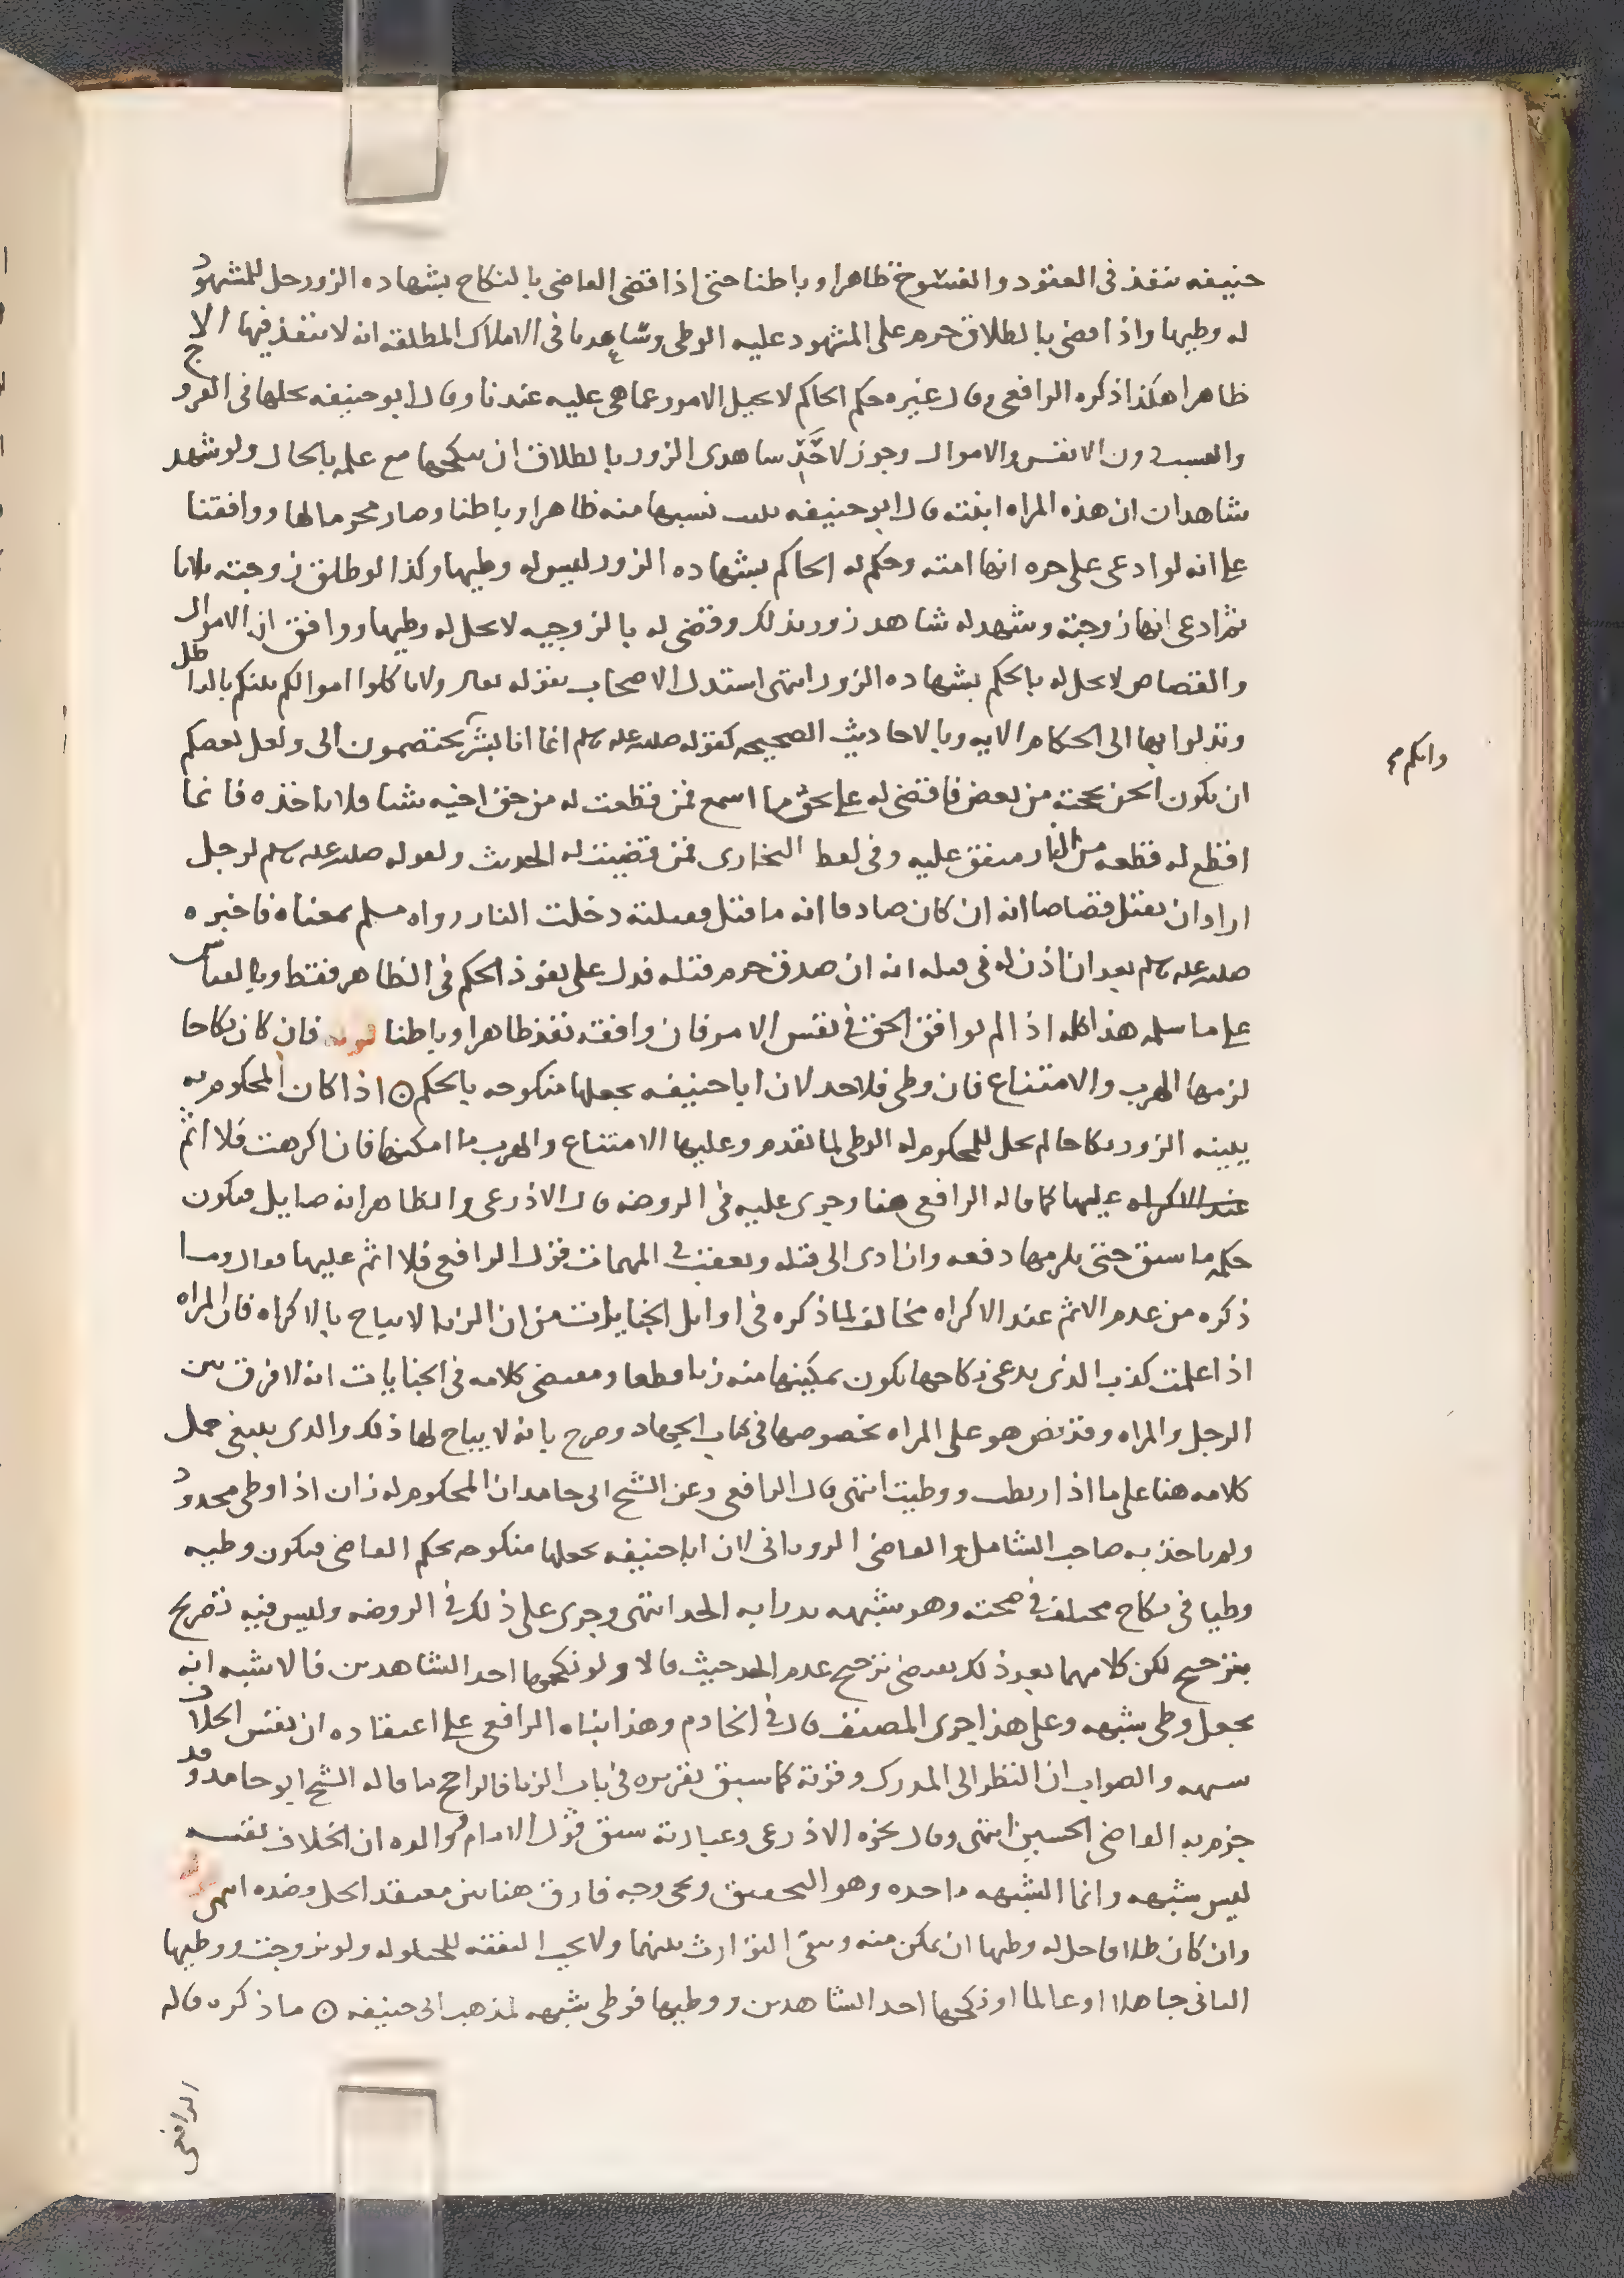 حنيفه ينفذ فى العقود والفسوخ ظاهرا وباطنا حتى اذا قضى القاضى بالنكاح بشهاده الزور حل للمشهود
له وطيها واذا قضى بالطلاق حرم على المشهود عليه الوطى وساعدنا فى الاملاك المطلقه انه لا ينفذ فيها الا
ظاهرا هكذا ذكره الرافعى وقال غيره حكم الحاكم لا يحيل الامور عما هى عليه عندنا وقال ابو حنيفه يحلها فى الفروج
والنسب دون الانفس والاموال وجوز لاحد شاهدى الزور بالطلاق ان ينكحها مع علمه بالحال ولو شهد
شاهدان ان هذه المراه ابنته قال ابو حنيفه يثبت نسبها منه ظاهرا وباطنا وصار محرما لها ووافقنا
على انه لو ادعى على حره انها امته وحكم له الحاكم بشهاده الزور ليس له وطيها وكذا لو طلق زوجته ثلاثا
ثم ادعى انها زوجته وشهد له شاهد زور بذلك وقضى له بالزوجيه لا يحل له وطيها ووافق ان الاموال
والقصاص لا يحل له بالحكم بشهاده الزور انتهى استدل الاصحاب بقوله تعالى ولا تاكلوا اموالكم بينكم بالباطل
وتدلوا بها الى الحكام الايه وبالاحاديث الصحيحه كقوله صلى الله عليه وسلم انما انا بشر وانكم تختصمون الى ولعل بعضكم
ان يكون الحن بحجته من بعض فاقضى له على نحو ما اسمع فمن قطعت له من حق اخيه شيا فلا ياخذه فانما
اقطع له قطعه من النار متفق عليه وفى لفظ البخارى فمن قضيت له الحديث ولقوله صلى الله عليه وسلم لرجل
اراد ان يقتل قصاصا انه ان كان صادقا انه ما قتل فقتلته دخلت النار رواه مسلم بمعناه فاخبره
صلى الله عليه وسلم بعد ان اذن له فى قتله انه ان صدق حرم قتله فدل على نفوذ الحكم فى الظاهر فقط وبالقياس
على ما سلمه هذا كله اذا لم يوافق الحق فى نفس الامر فان وافقه نفذ ظاهرا وباطنا قوله فان كان نكاحا
لزمها الهرب والامتناع فان وطى فلا حد لان ابا حنيفه يجعلها منكوحه بالحكم ٥ اذا كان المحكوم به
ببينه الزور نكاحا لم يحل للمحكوم له الوطى لما تقدم وعليها الامتناع والهرب ما امكنها فان اكرهت فلا اثم
عند الاكراه عليها كما قاله الرافعى هنا وجرى عليه فى الروضه قال الاذرعى والظاهر انه صايل فيكون
حكمه ما سبق حتى يلزمها دفعه وان ادى الى قتله وتعقب فى المهمات قول الرافعى فلا اثم عليها فقال وما
ذكره من عدم الاثم عند الاكراه مخالف لما ذكره فى اوايل الجنايات من ان الزنا لا يباح بالاكراه فان المراه
اذا علمت كذب الذى يدعى نكاحها يكون تمكينها منه زنا قطعا ومقتضى كلامه فى الجنايات انه لا فرق بين
الرجل والمراه وقد نص هو على المراه بخصوصها فى كتاب الجهاد وصرح بانه لا يباح لها ذلك والذى ينبغى حمل
كلامه هنا على ما اذا ربطت ووطيت انتهى قال الرافعى وعن الشيخ ابى حامد ان المحكوم له زان اذا وطى محدود
ولم ياخذ به صاحب الشامل والقاضى الرويانى لان ابا حنيفه يجعلها منكوحه بحكم القاضى فيكون وطيه
وطيا فى نكاح مختلف فى صحته وهو شبهه يدرا به الحد انتهى وجرى على ذلك فى الروضه وليس فيه تصريح
بترجيح لكن كلامهما بعد ذلك يقتضى ترجيح عدم الحد حيث قالا ولو نكحها احد الشاهدين فالاشبه انه
يجعل وطى شبهه وعلى هذا جرى المصنف قال فى الخادم وهذا بناه الرافعى على اعتقاده ان نفس الخلاف
شبهه والصواب ان النظر الى المدرك وقوته كما سبق تقريره فى باب الزنا فالراجح ما قاله الشيخ ابو حامد وقد
جزم به القاضى الحسين انتهى وقال نحوه الاذرعى وعبارته سبق قول الامام ووالده ان الخلاف نفسه
ليس شبهه وانما الشبهه ماخذه وهو التحقيق ونحى وجه فارق هنا بين معتقد الحل وضده انتهى قوله
وان كان طلاقا حل له وطيها ان تمكن منه ويبقى التوارث بينهما ولا تجب النفقه للحيلوله ولو تزوجت ووطيها
الثانى جاهلا او عالما او نكحها احد الشاهدين ووطيها فوطى شبهه لمذهب ابى حنيفه ٥ ما ذكره قاله
الرافعى